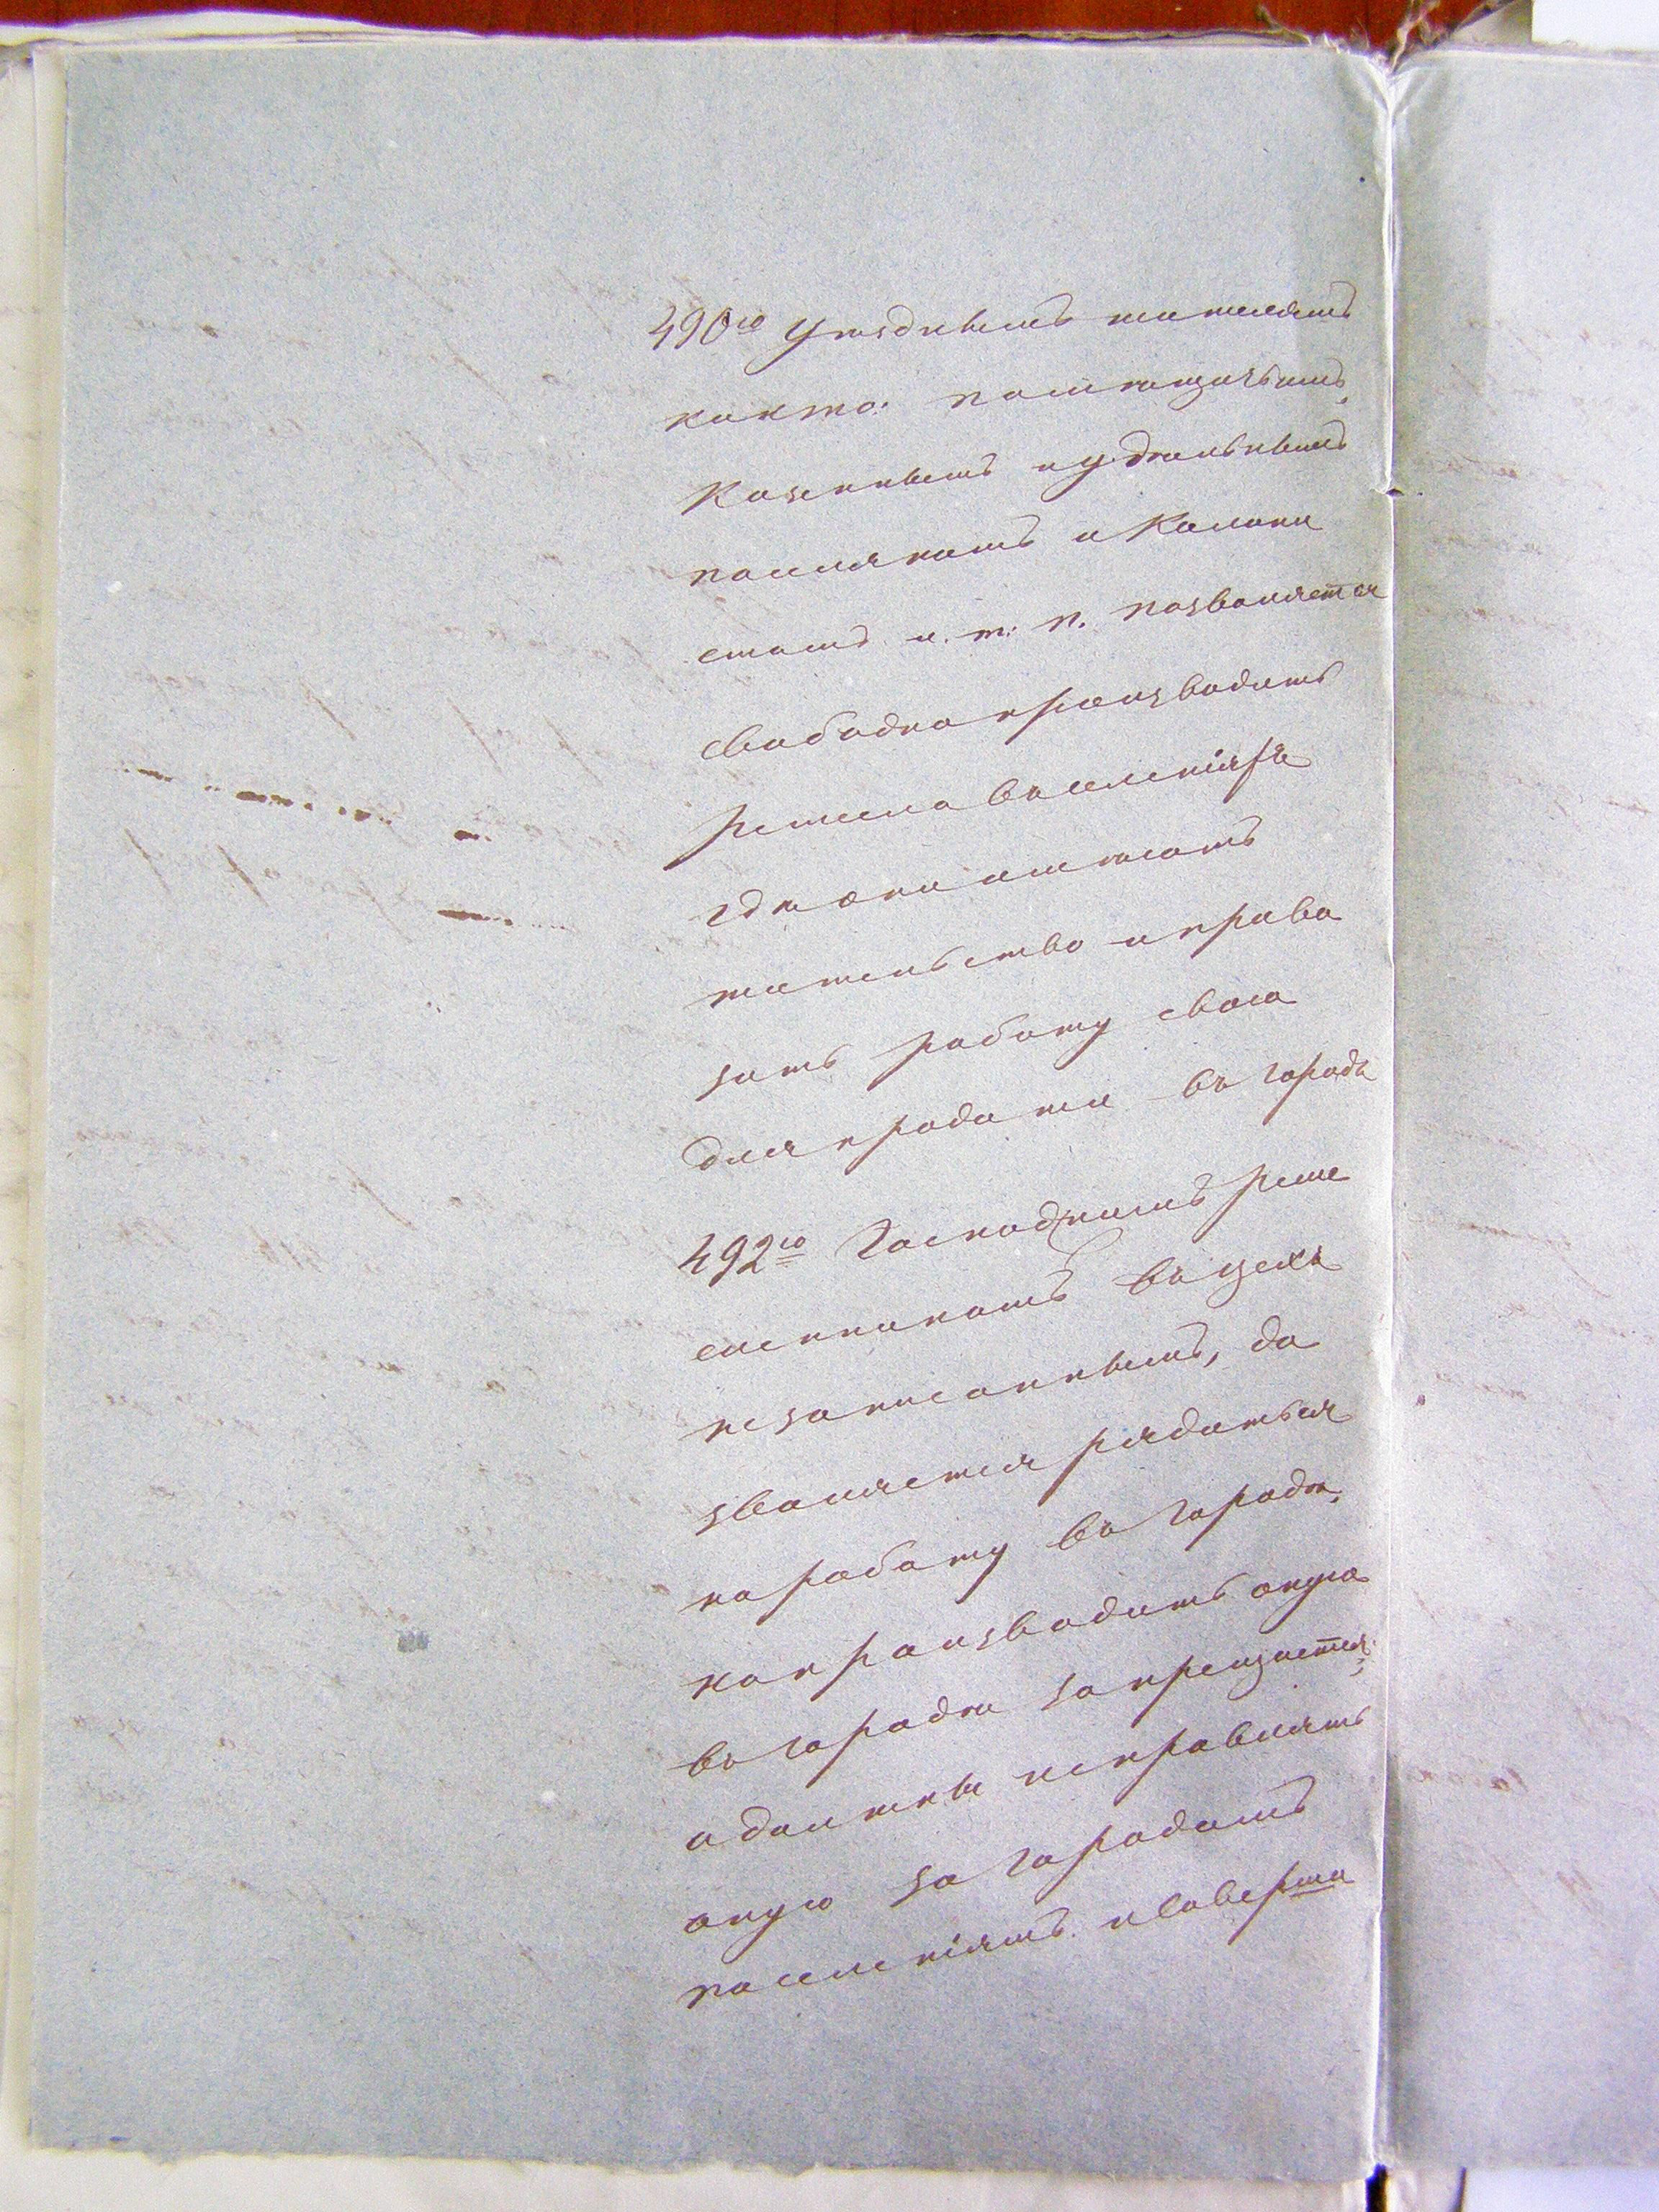 490ю Уѣзднымъ жителямъ
както: помѣщичьимъ,
Казеннымъ иудѣльнымъ
поселянамъ и Колони
стамъ и. т: п. позволяется
свободно производить
ремесла въселеніяхъ
гдѣ они имѣютъ
жительство и прода
вать работу свою
для продажи въ городъ
492ю Господскимъ реме
сленникамъ въ цехъ
незаписаннымъ, до
зволяется рядиться
на работу въ городѣ,
но производить оную
въ городѣ запрещается;
а должны исправлять
оную за городомъ
поселеніямъ.